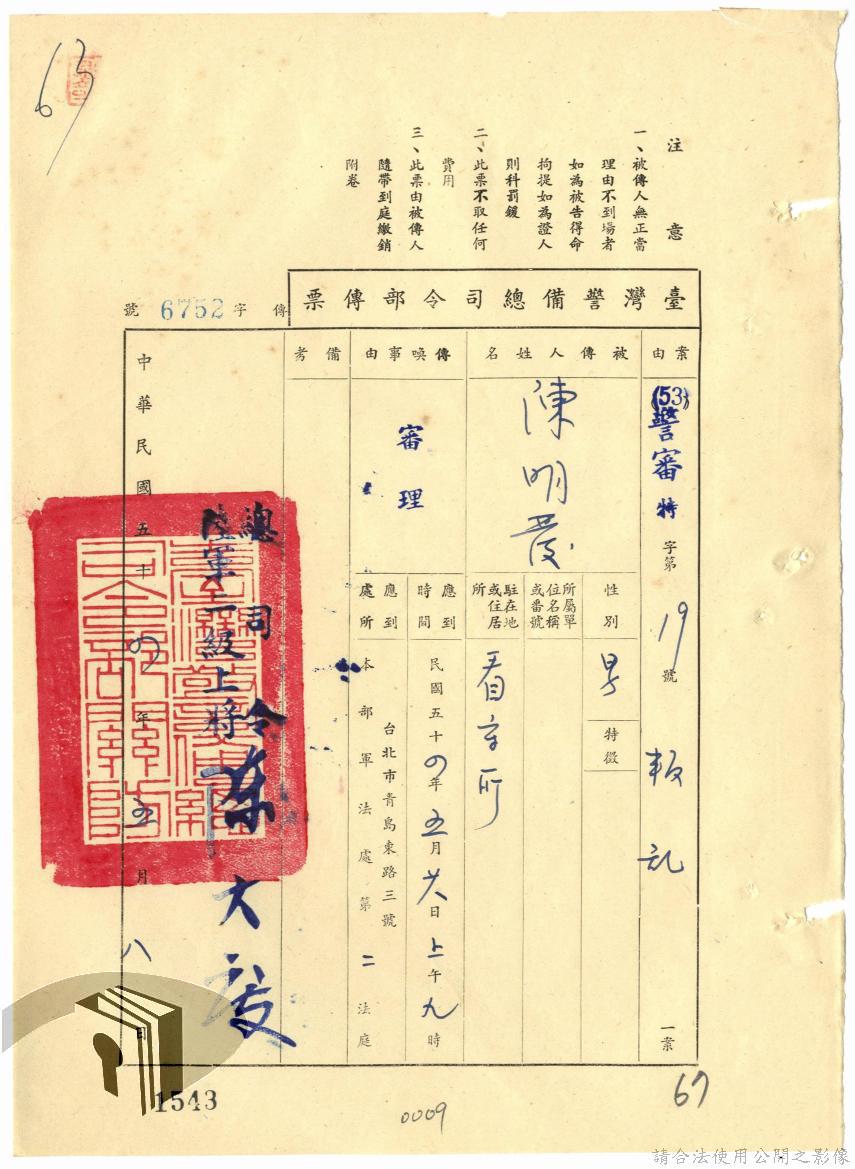 63
注意
一、被傳人無正當
理由不到場者
如為被告得命
拘提如為證人
則科罰鍰
二、此票不取任何
費用
三、此票由被傳人
隨帶到庭繳銷
附卷
臺灣警備總司令部傳票
傳字 6752 號
案由
(53)警審特字第19號 叛乱 一案
被傳人姓名
陳明發
性別
男
特徵
所屬單
位名稱
或番號
駐在地
或住居
所
看守所
傳喚事由
審理
應到
時間
民國五十四年五月廿日上午九時
應到
處所
台北市青島東路三號
本部軍法處第二法庭
備考
總司令
陸軍二級上將
陳大慶
中華民國五十四年五月八日
1543
0009
67
請合法使用公開之影像